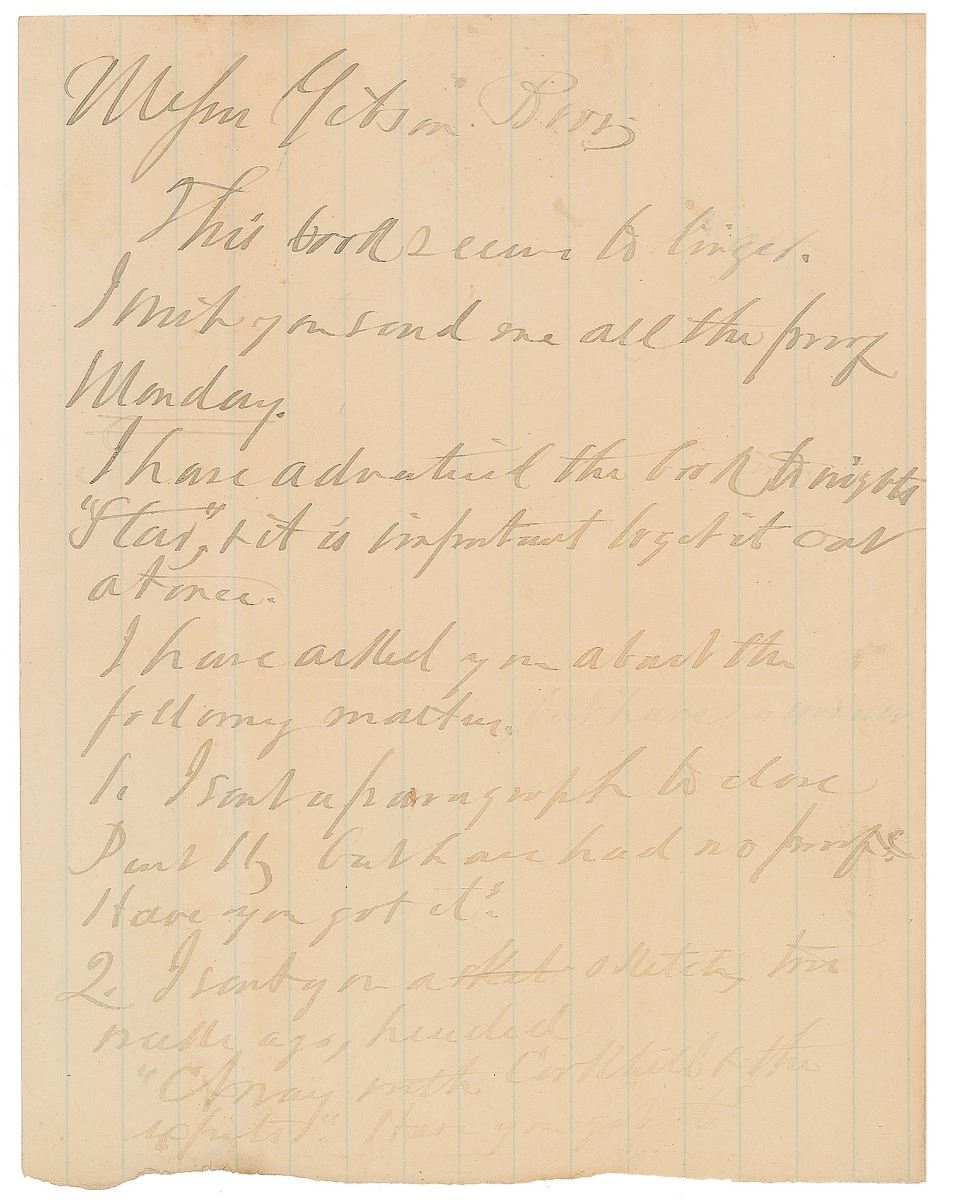 Messrs Gibson Bros
This book seems to linger.
I wish you send me all the proof
Monday.
I have advertised the book to nights
"Star", & it is important to get it out
at once.
I have asked you about the
following matters, but have no answer
1. I sent a paragraph to close
Part II, but have had no proof.
Have you got it?
2. I sent you a sket sketch, two
weeks ago, headed
"Away with Corkhill & the
experts". Have you got it